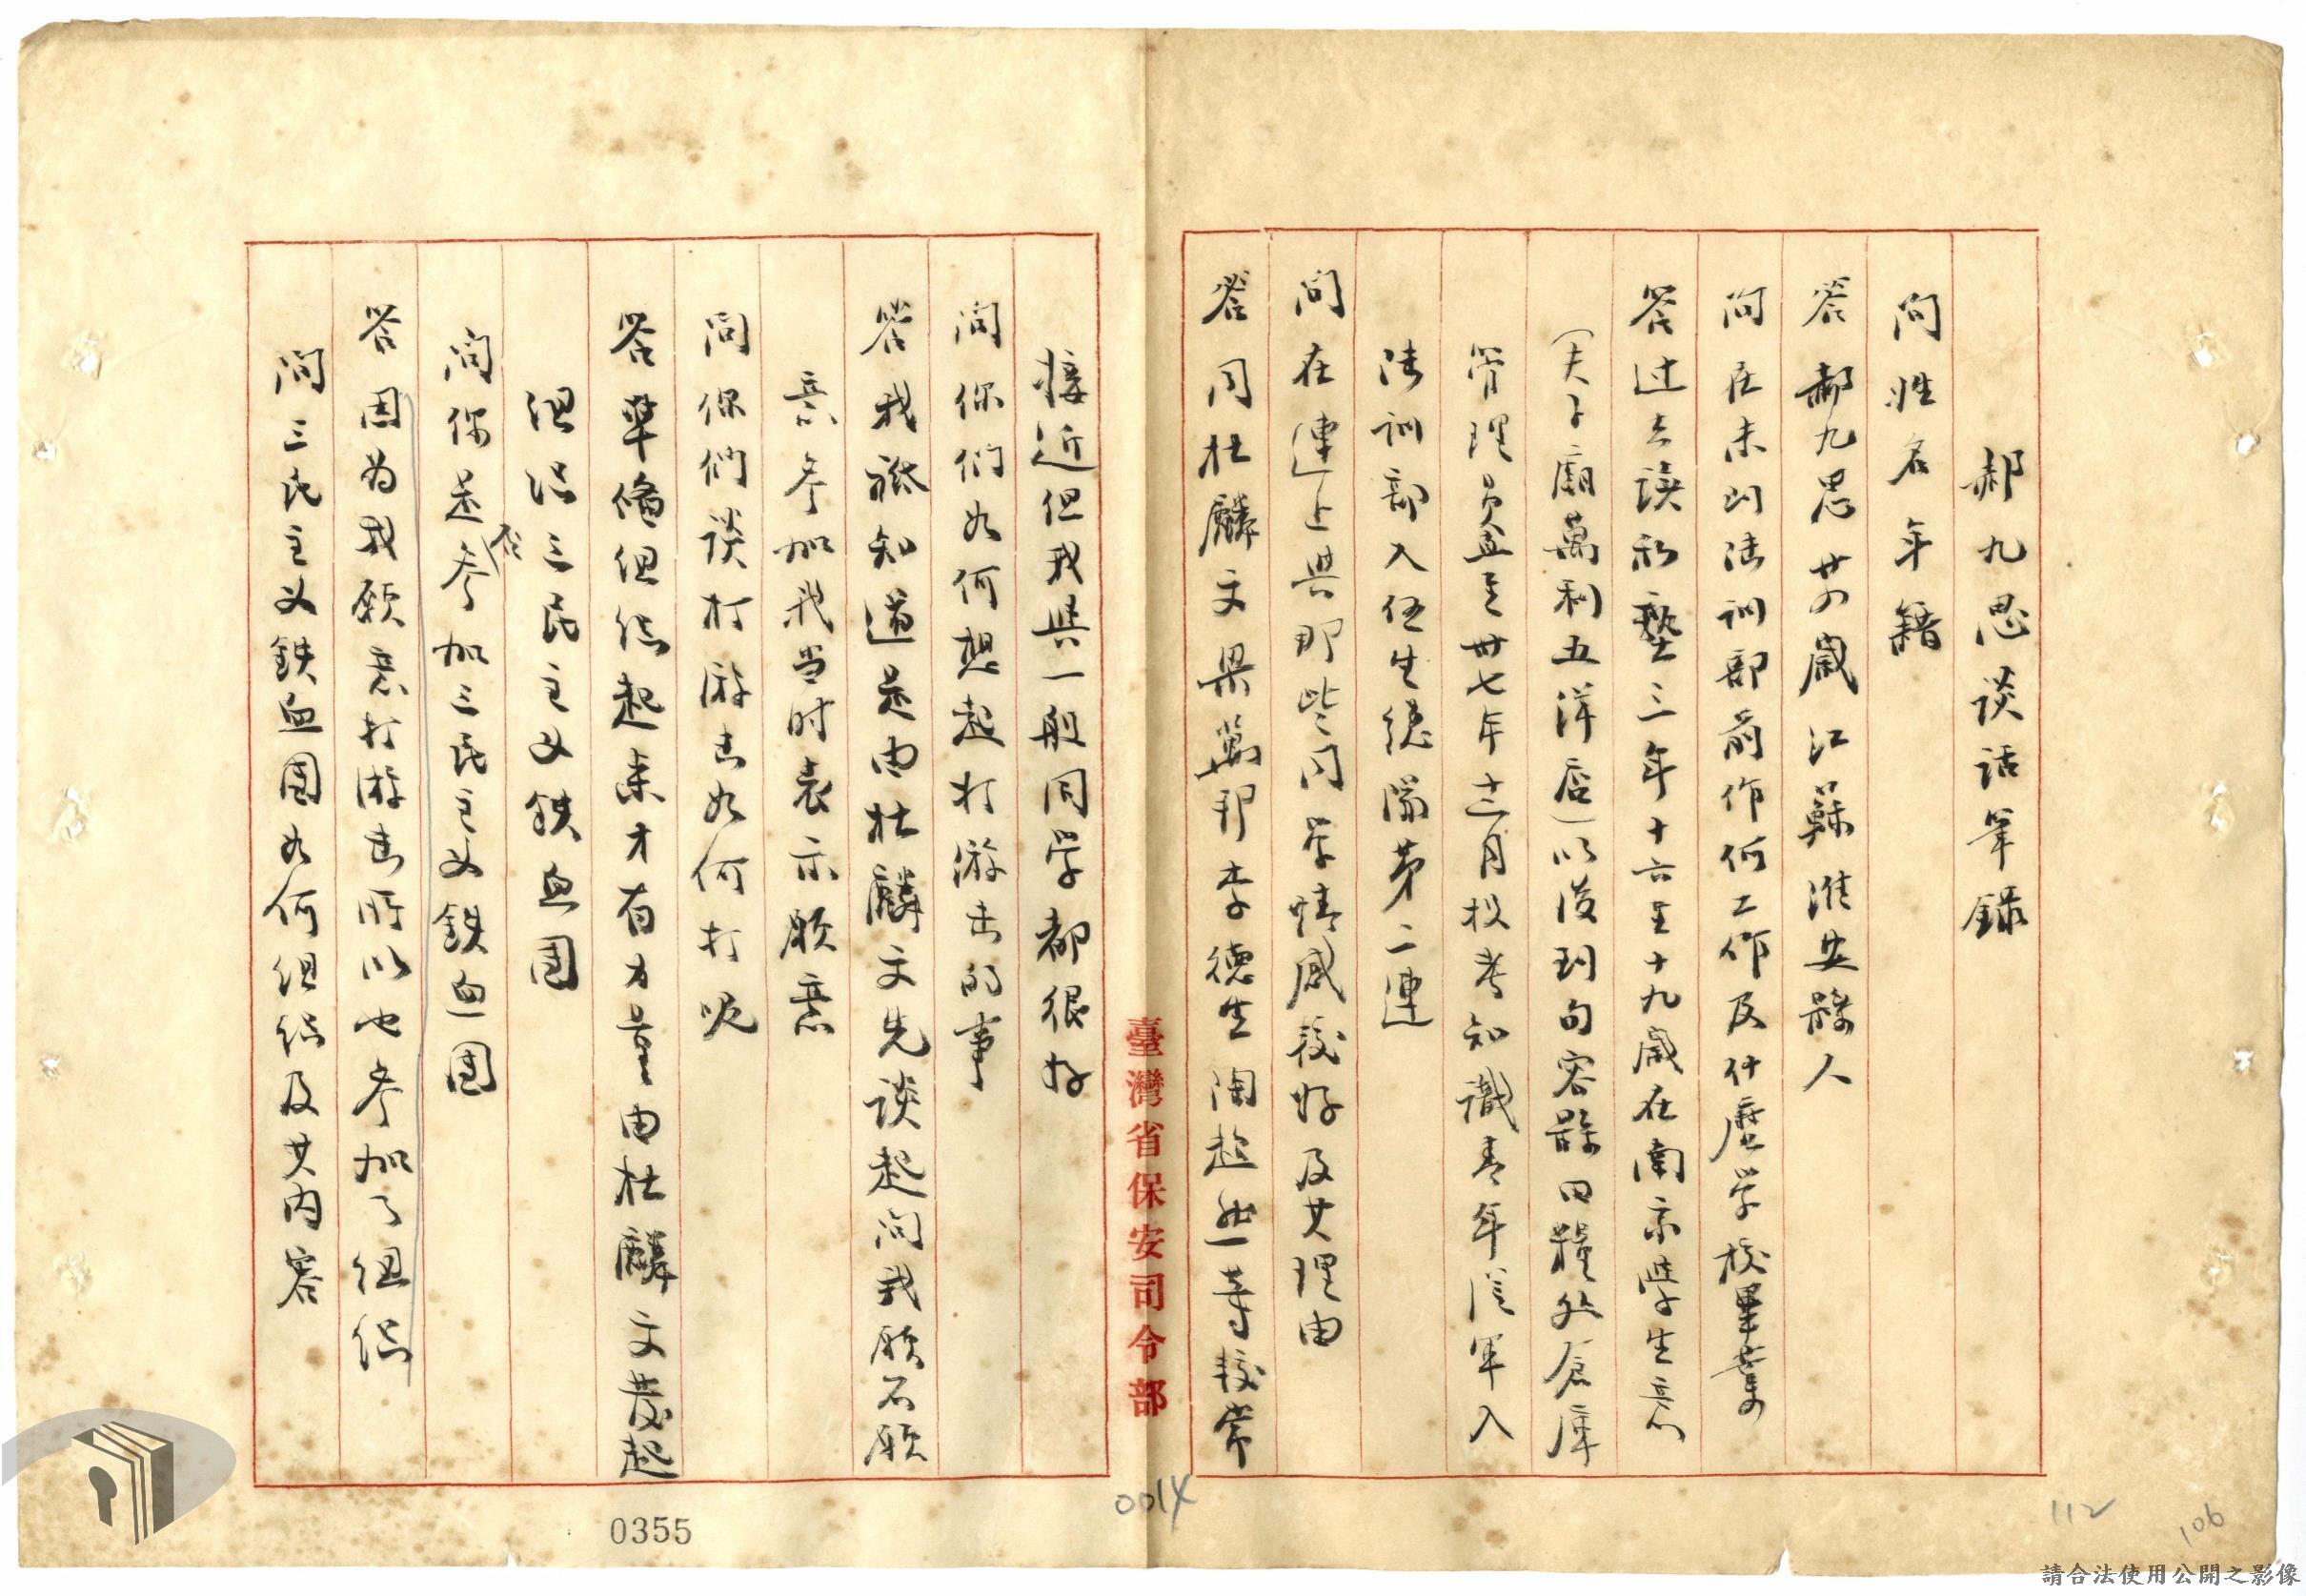 郝九思谈话笔錄
问姓名年籍
答郝九思廿の歲江蘇淮安縣人
问在未到法训部前作何工作及什麽学校畢業
答过去读私塾三年十六至十九歲在南京学生意
(夫子廟萬利五洋店)以後到句容縣田糧处倉库
管理員直至卅七年十二月投考知識青年從军入
法训部入伍生總隊第二連
问在連上與那些同学情感较好及其理由
答同杜麟文梁萬邦李德生陶超然等较常
接近但我與一般同学都很好
问你們如何想起打游击的事
答我祗知道是由杜麟文先谈起问我願不願
意参加我当时表示願意
问你們谈打游击如何打呢
答準備组織起来才有力量由杜麟文發起
组织三民主义鉄血團
问你是否参加三民主义鉄血團
答因为我願意打游击所以也参加了组織
问三民主义鉄血團如何组織及其内容
臺灣省保安司令部
0014
0355
112
106
請合法使用公開之影像